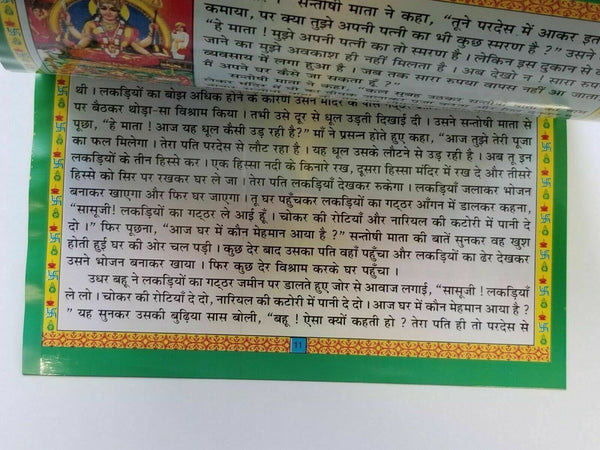 सन्तोषी माता ने कहा, “तूने परदेस में आकर
कमाया, पर क्या तुझे अपनी पत्नी का भी कुछ स्मरण है ?” उसने
“हे माता ! मुझे अपनी पत्नी का तो स्मरण है । लेकिन इस दुकान से
जाने का मुझे अवकाश ही नहीं मिलता है । अब देखो न ! सारा
व्यवसाय में लगा हुआ है । जब तक सारा रुपया वापस नहीं आ जाता
में अपने घर कैसे जा सकता हूँ ?”
सन्तोषी माता
थी । लकड़ियों का बोझ अधिक होने के कारण उसने मंदिर के पास
पर बैठकर थोड़ा-सा विश्राम किया । तभी उसे दूर से धूल उड़ती दिखाई दी । उसने सन्तोषी माता से
पूछा, “हे माता ! आज यह धूल कैसी उड़ रही है?” माँ ने प्रसन्न होते हुए कहा, “आज तुझे तेरी पूजा
का फल मिलेगा । तेरा पति परदेस से लौट रहा है । यह धूल उसके लौटने से उड़ रही है । अब तू इन
लकड़ियों के तीन हिस्से कर । एक हिस्सा नदी के किनारे रख, दूसरा हिस्सा मंदिर में रख दे और तीसरे
हिस्से को सिर पर रखकर घर ले जा । तेरा पति लकड़ियां देखकर रुकेगा । लकड़ियाँ जलाकर भोजन
बनाकर खाएगा और फिर घर जाएगा । तू घर पहुँचकर लकड़ियों का गट्ठर आँगन में डालकर कहना,
“सासूजी! लकड़ियों का गट्ठर ले आई हूँ । चोकर की रोटियाँ और नारियल की कटोरी में पानी दे
दो ।” फिर पूछना, “आज घर में कौन मेहमान आया है ?” सन्तोषी माता की बातें सुनकर वह खुश
होती हुई घर की ओर चल पड़ी । कुछ देर बाद उसका पति वहाँ पहुँचा और लकड़ियों का ढेर देखकर
उसने भोजन बनाकर खाया । फिर कुछ देर विश्राम करके घर पहुँचा ।
उधर बहू ने लकड़ियों का गट्ठर जमीन पर डालते हुए जोर से आवाज लगाई, “सासूजी ! लकड़ियाँ
ले लो । चोकर की रोटियाँ दे दो, नारियल की कटोरी में पानी दे दो । आज घर में कौन मेहमान आया है ?
” यह सुनकर उसकी बुढ़िया सास बोली, “बहू ! ऐसा क्यों कहती हो ? तेरा पति ही तो परदेस से
11